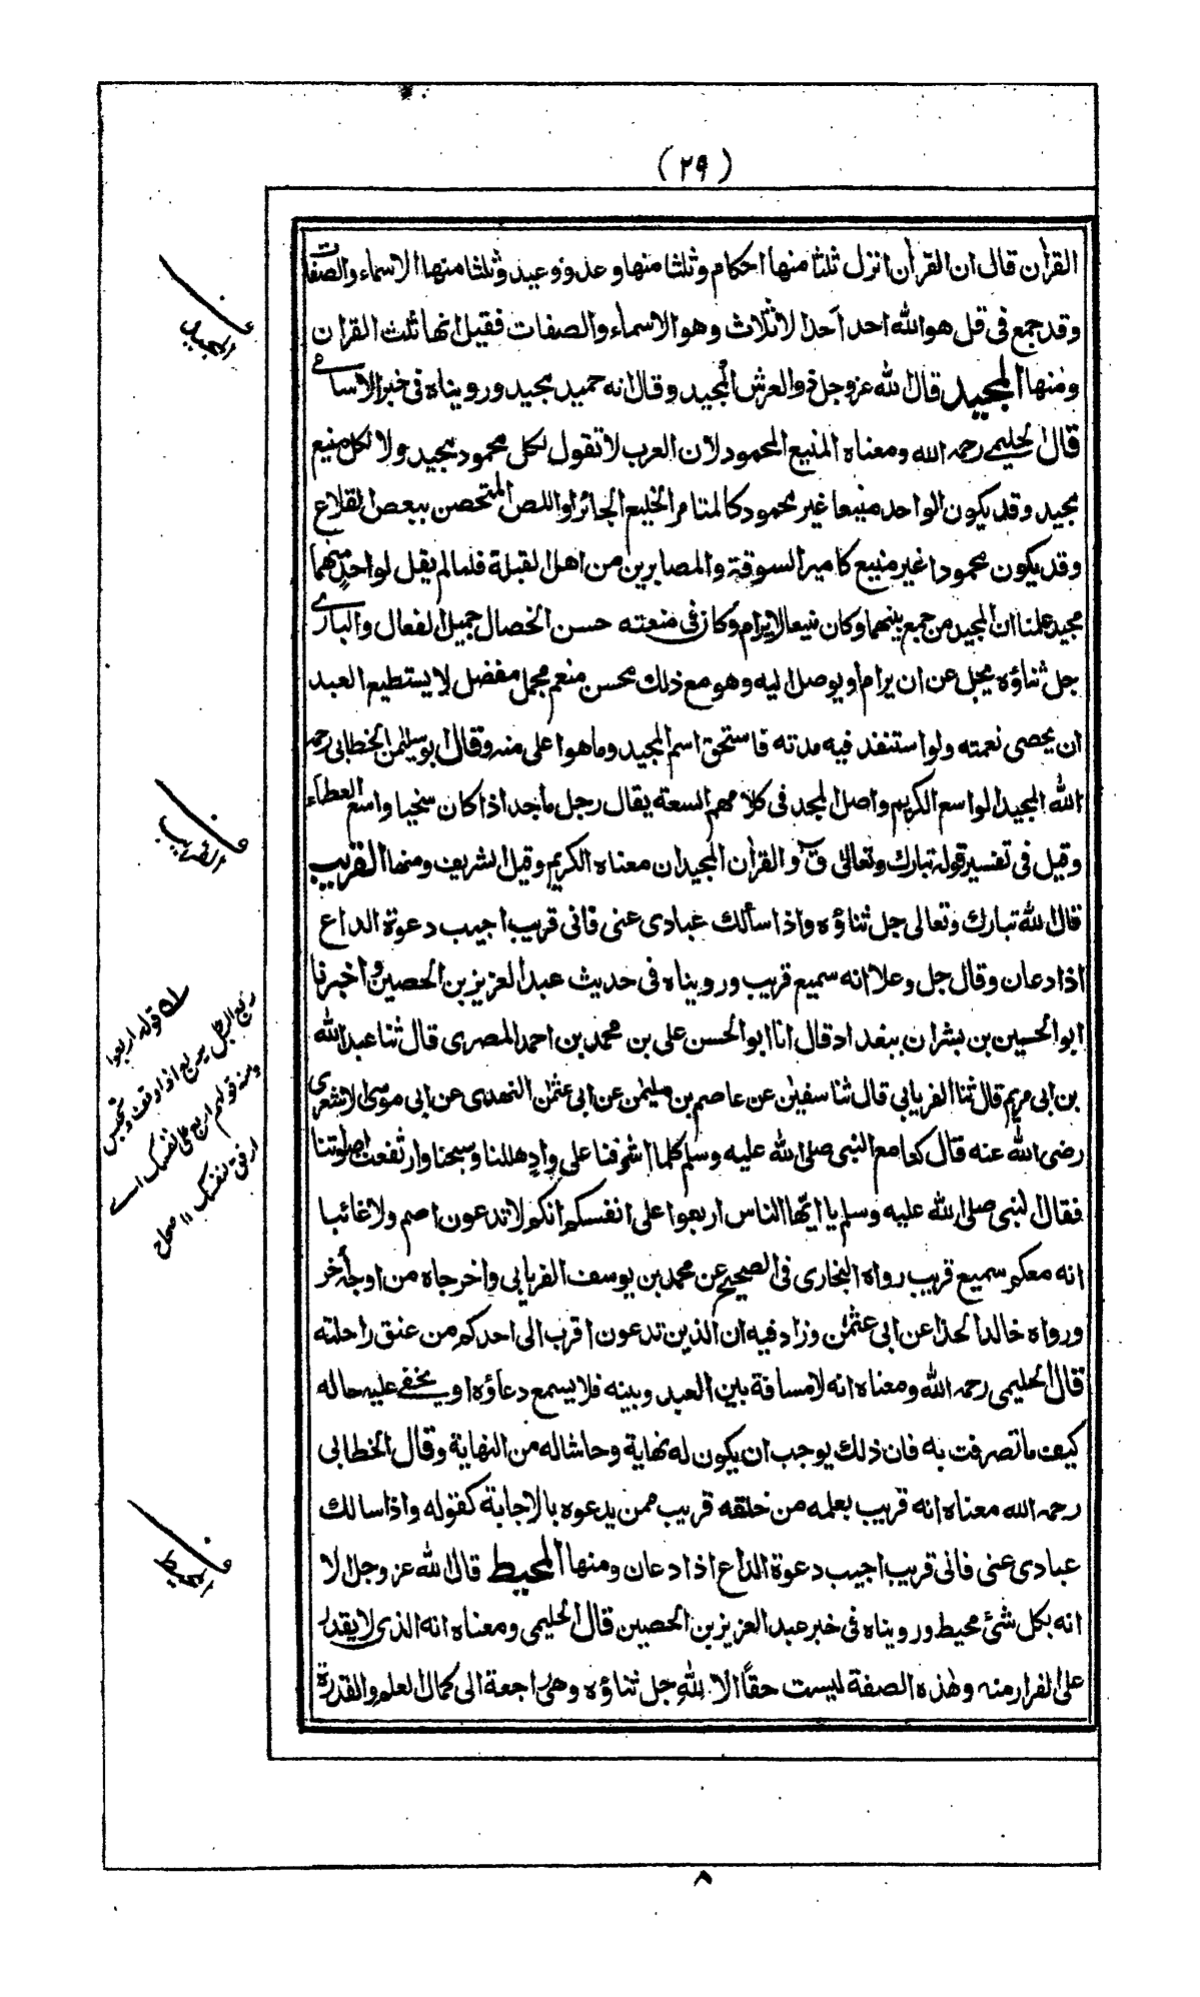 (٢٩)
القرأن قال ان القرأن انزل ثلثا منها احكام وثلثا منها وعد ووعيد وثلثا منها الاسماء والصفات
وقد جمع فى قل هو الله احد احد الاثلاث وهو الاسماء والصفات فقيل انها ثلث القران
ومنها المجيد قال الله عز وجل ذو العرش المجيد وقال انه حميد مجيد ورويناه فى خبر الاسامى
قال الحليمى رحمه الله ومعناه المنيع المحمود لان العرب لا تقول لكل محمود مجيد ولا لكل منيع
مجيد وقد يكون الواحد منيعا غير محمود كالمتامر الخليع الجائر او اللص المتحصن ببعض القلاع
وقد يكون محمودا غير منيع كامير السوقة والمصابرين من اهل القبلة فلما لم يقل لواحد منهما
مجيد علمنا ان المجيد من جمع بينهما وكان منيعا لا يرام وكان فى منعته حسن الخصال جميل الفعال والبارى
جل ثناؤه يجل عن ان يرام او يوصل اليه وهو مع ذلك محسن منعم مجمل مفضل لا يستطيع العبد
ان يحصى نعمته ولو استنفد فيه مدته فاستحق اسم المجيد وما هو اعلى منه وقال ابو سليمن الخطابى رحمه
الله المجيد الواسع الكريم واصل المجد فى كلامهم السعة يقال رجل ماجد اذا كان سخيا واسع العطاء
وقيل فى تفسير قوله تبارك وتعالى ق و القرأن المجيد ان معناه الكريم وقيل الشريف ومنها القريب
قال الله تبارك وتعالى جل ثناؤه واذا سألك عبادى عنى فانى قريب اجيب دعوة الداع
اذا دعان وقال جل وعلا انه سميع قريب ورويناه فى حديث عبد العزيز بن الحصين واخبرنا
ابو الحسين بن بشران ببغداد قال انا ابو الحسن على بن محمد بن احمد المصرى قال ثنا عبد الله
بن ابى مريم قال ثنا الفريابى قال ثنا سفيٰن عن عاصم بن سليمن عن ابى عثمٰن النهدى عن ابى موسى الاشعرى
رضى الله عنه قال كنا مع النبى صلى الله عليه وسلم كلما اشرفنا على وادٍ هللنا وسبحنا وارتفعت اصلوتنا
فقال النبى صلى الله عليه وسلم يا ايها الناس اربعوا على انفسكم انكم لا تدعون اصم ولا غائبا
انه معكم سميع قريب رواه البخارى فى الصحيح عن محمد بن يوسف الفريابى واخرجاه من اوجه أخر
ورواه خالد الحذا عن ابى عثمٰن وزاد فيه ان الذين تدعون اقرب الى احدكم من عنق راحلته
قال الحليمى رحمه الله ومعناه انه لا مسافة بين العبد وبينه فلا يسمع دعاؤه او يخفى عليه حاله
كيف ما تصرفت به فان ذلك يوجب ان يكون له نهاية وحاشا له من النهاية وقال الخطابى
رحمه الله معناه انه قريب بعلمه من خلقه قريب ممن يدعوه بالاجابة كقوله واذا سالك
عبادى عنى فانى قريب اجيب دعوة الداع اذا دعان ومنها المحيط قال الله عز وجل الا
انه بكل شئ محيط ورويناه فى خبر عبد العزيز بن الحصين قال الحليمى ومعناه انه الذى لا يقدر
على الفرار منه وهذه الصفة ليست حقًا الا لله جل ثناؤه وهى راجعة الى كمال العلم والقدرة
المجيد
القريب
قوله اربعوا
ربع الرجل يربع اذا وقف وتحبس
ومنه قولهم اربع على نفسك اے
ارفق بنفسك ۱۱ صحاح
المحيط
٨